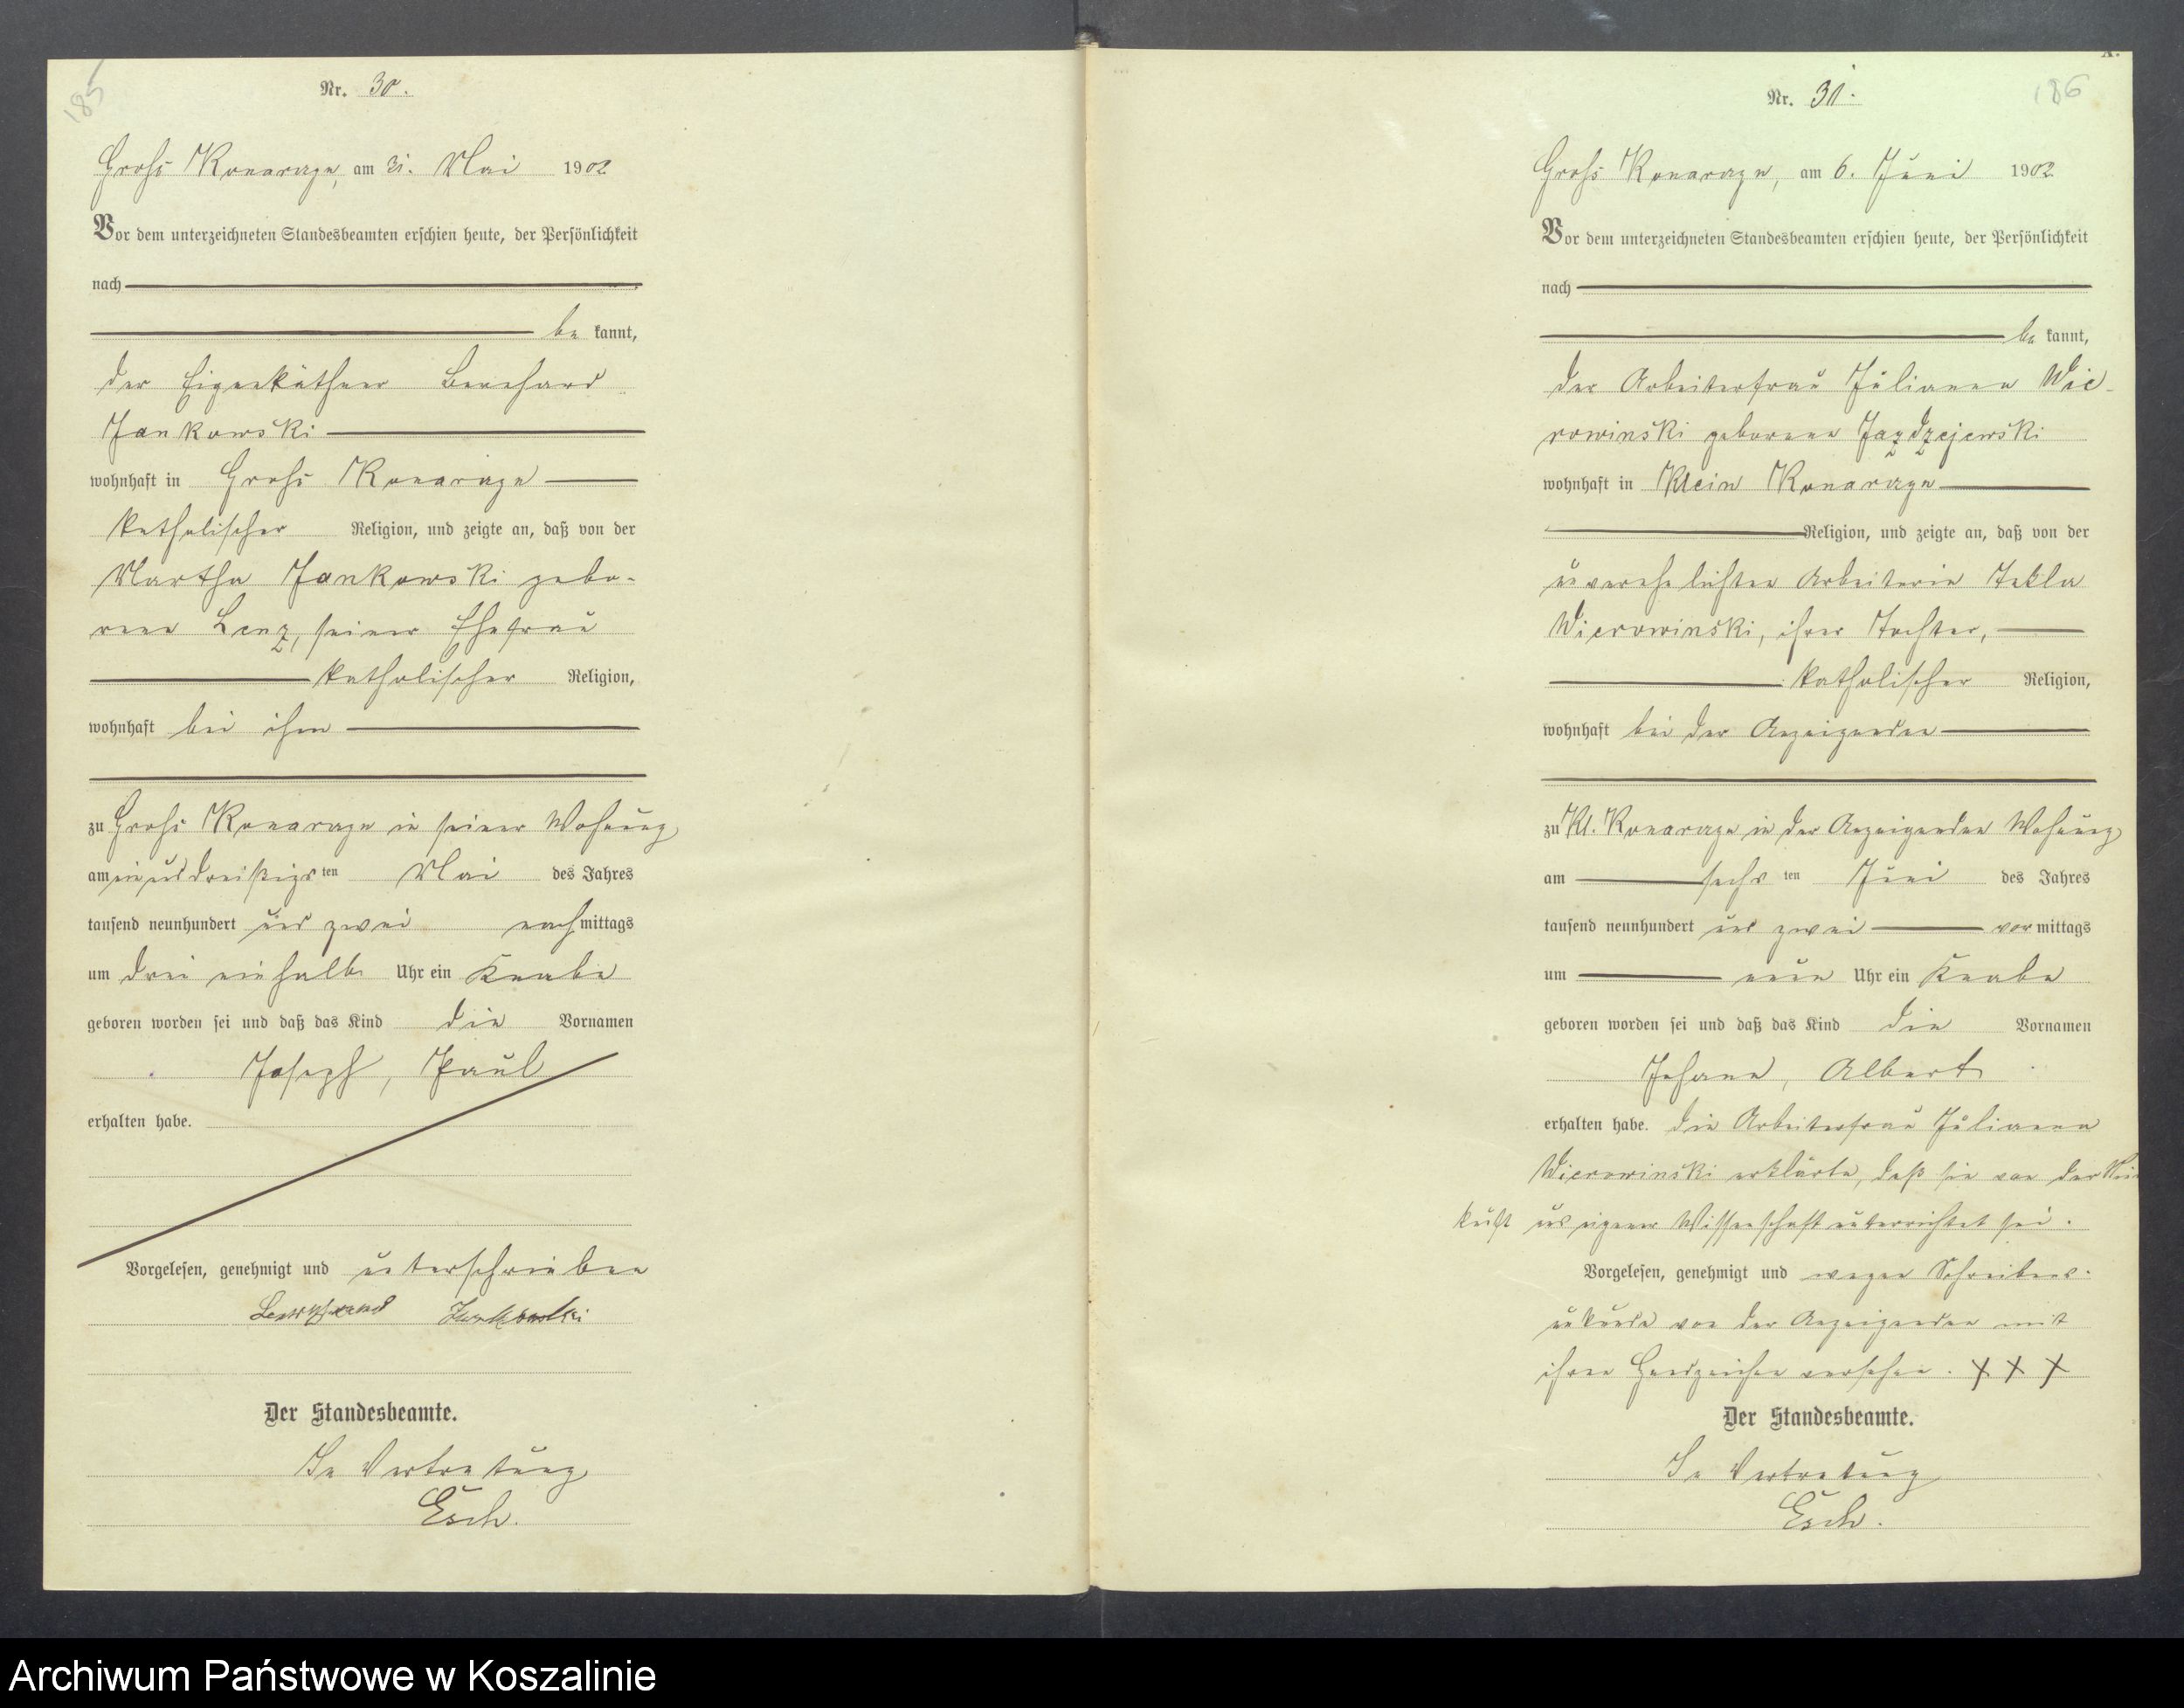 185
Nr. 30.
Groß Konarzyn, am 31. Mai 1902
Vor dem unterzeichneten Standesbeamten erschien heute, der Persönlichkeit
nach
be kannt,
der Eigenkäthner Bernhard
Jankowski
wohnhaft in Groß Konarzyn
katholischer Religion, und zeigte an, daß von der
Martha Jankowski gebo-
rene Lenz, seiner Ehefrau
katholischer Religion,
wohnhaft bei ihm
zu Groß Konarzyn in seiner Wohnung
am einunddreißigsten Mai des Jahres
tausend neunhundert und zwei nachmittags
um drei einhalb Uhr ein Knabe
geboren worden sei und daß das Kind die Vornamen
Joseph, Paul
erhalten habe.
Vorgelesen, genehmigt und unterschrieben
Jankowski
Der Standesbeamte.
In Vertretung
Esch.
186
Nr. 31.
Groß Konarzyn, am 6. Juni 1902
Vor dem unterzeichneten Standesbeamten erschien heute, der Persönlichkeit
nach
be kannt,
der Arbeiterfrau Julianna Wie-
rowinski geborene Jazdzejewski
wohnhaft in Klein Konarzyn
Religion, und zeigte an, daß von der
unverehelichten Arbeiterin Tekla
Wierowinski, ihrer Tochter,
katholischer Religion,
wohnhaft bei der Anzeigenden
zu Kl. Konarzyn in der Anzeigenden Wohnung
am sechsten Juni des Jahres
tausend neunhundert und zwei vormittags
um neun Uhr ein Knabe
geboren worden sei und daß das Kind die Vornamen
Johann, Albert
erhalten habe. Die Arbeiterfrau Julianna
Wierowinski erklärte, daß sie von der Nie
kunft aus eigener Wissenschaft unterrichtet sei.
Vorgelesen, genehmigt und wegen Schreibens-
unkunde von der Anzeigenden mit
ihren Handzeichen versehen. + + +
Der Standesbeamte.
In Vertretung
Esch.
Archiwum Państwowe w Koszalinie